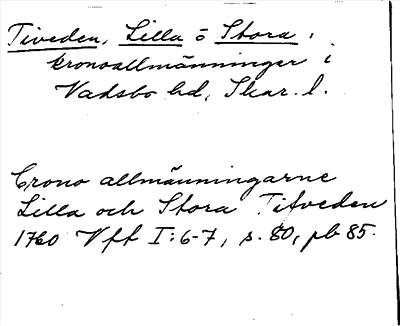 Tiveden, Lilla o Stora,
kronoallmänningar i
Vadsbo hd, Skar. l.
Crono allmänningarne
Lilla och Stora Tifveden
1760 Vft I:6-7, s. 80, pb 85.